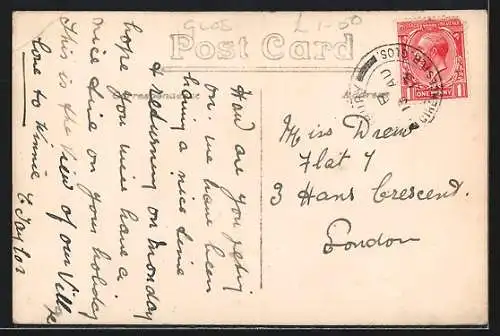 GLOS £1-50
Post Card
Correspondence
Address
How are you geting
on. we have been
having a nice time
& Returning on Monday
hope you will have a
nice time on your holiday
This is the View of our Village
love to Winnie E Taylor
Miss Drew
Flat 7
3 Hans Crescent.
London
ONE PENNY
1